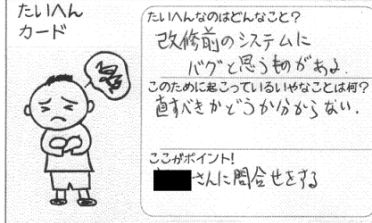 たいへん
カード
たいへんなのはどんなこと?
改修前のシステムに
バグと思うものがある.
このために起こっているいやなことは何?
直すべきかどうか分からない.
ここがポイント!
さんに問合せをする